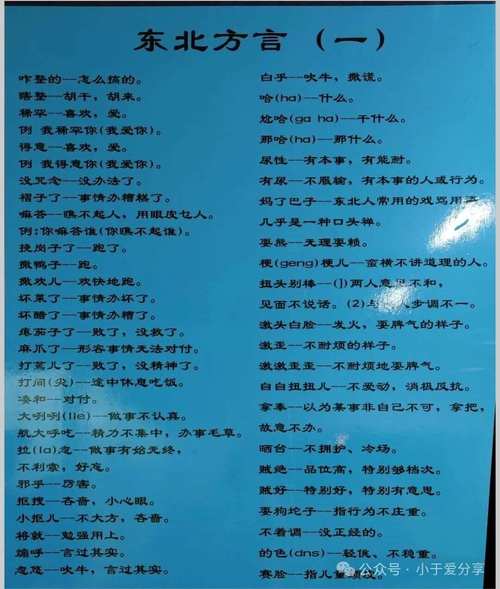 东北方言（一）
咋整的--怎么搞的。
瞎整--胡干，胡来。
稀罕--喜欢，爱。
例 我稀罕你(我爱你)。
得意--喜欢，爱。
例 我得意你(我爱你)。
没咒念--没办法了。
褶子了--事情办糟糕了。
麻答--瞧不起人，用眼皮乜人。
例:你麻答谁(你瞧不起谁)。
挠岗子了--跑了。
撒鸭子--跑。
撒欢儿--欢快地跑。
坏菜了--事情办坏了。
坏醋了--事情办糟了。
瘪茄子了--败了，没救了。
麻爪了--形容事情无法对付。
打蔫儿了--败了，没精神了。
打间(尖)--途中休息吃饭。
凑和--对付。
大咧咧(lie)--做事不认真。
拉(la)忽--做事有始无终，
不利索，好忘。
邪乎--厉害。
抠搜--吝啬，小心眼。
小抠儿--不大方，吝啬。
将就--勉强用上。
煽呼--言过其实。
忽悠--吹牛，言过其实。
白乎--吹牛，撒谎。
哈(ha)--什么。
尬哈(ga ha)--干什么。
那哈(ha)--那什么。
尿性--有本事，有能耐。
有尿--不服输，有本事的人或行为。
妈了巴子--东北人常用的戏骂用语
几乎是一种口头禅。
耍熊--无理耍赖。
梗(geng)梗儿--蛮横不讲道理的人。
扭头别棒--(1)两人意见不和，
见面不说话。(2)与 人步调不一。
激头白脸--发火，耍脾气的样子。
激歪--不耐烦的样子。
激激歪歪--不耐烦地耍脾气。
白白扭扭儿--不爱动，消极反抗。
拿奉--以为某事非自己不可，拿把，
故意不办。
晒台--不拥护、冷场。
贼绝--品位高，特别够档次。
贼好--特别好，特别有意思。
耍狗坨子--指行为不庄重。
不着调--没正经的。
的色(dns)--轻佻、不稳重。
赛脸--指儿童顽皮。
公众号·小于爱分享